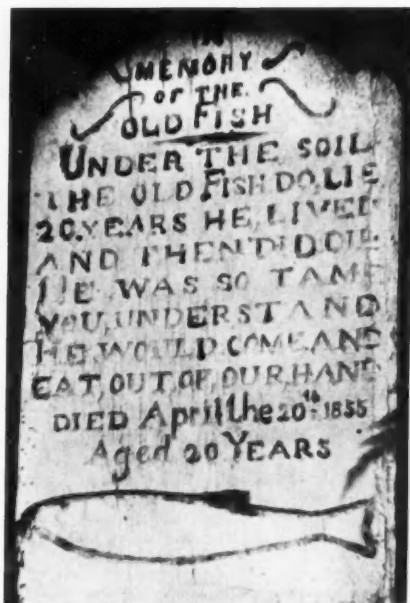 IN
MEMORY
OF THE
OLD FISH
UNDER THE SOIL
THE OLD FISH DO, LIE
20, YEARS HE, LIVED
AND THEN DID DIE.
HE WAS SO TAME
YOU, UNDERSTAND
HE, WOULD, COME, AND
EAT, OUT, OF, OUR, HAND
DIED April the 20th 1855
Aged 20 YEARS